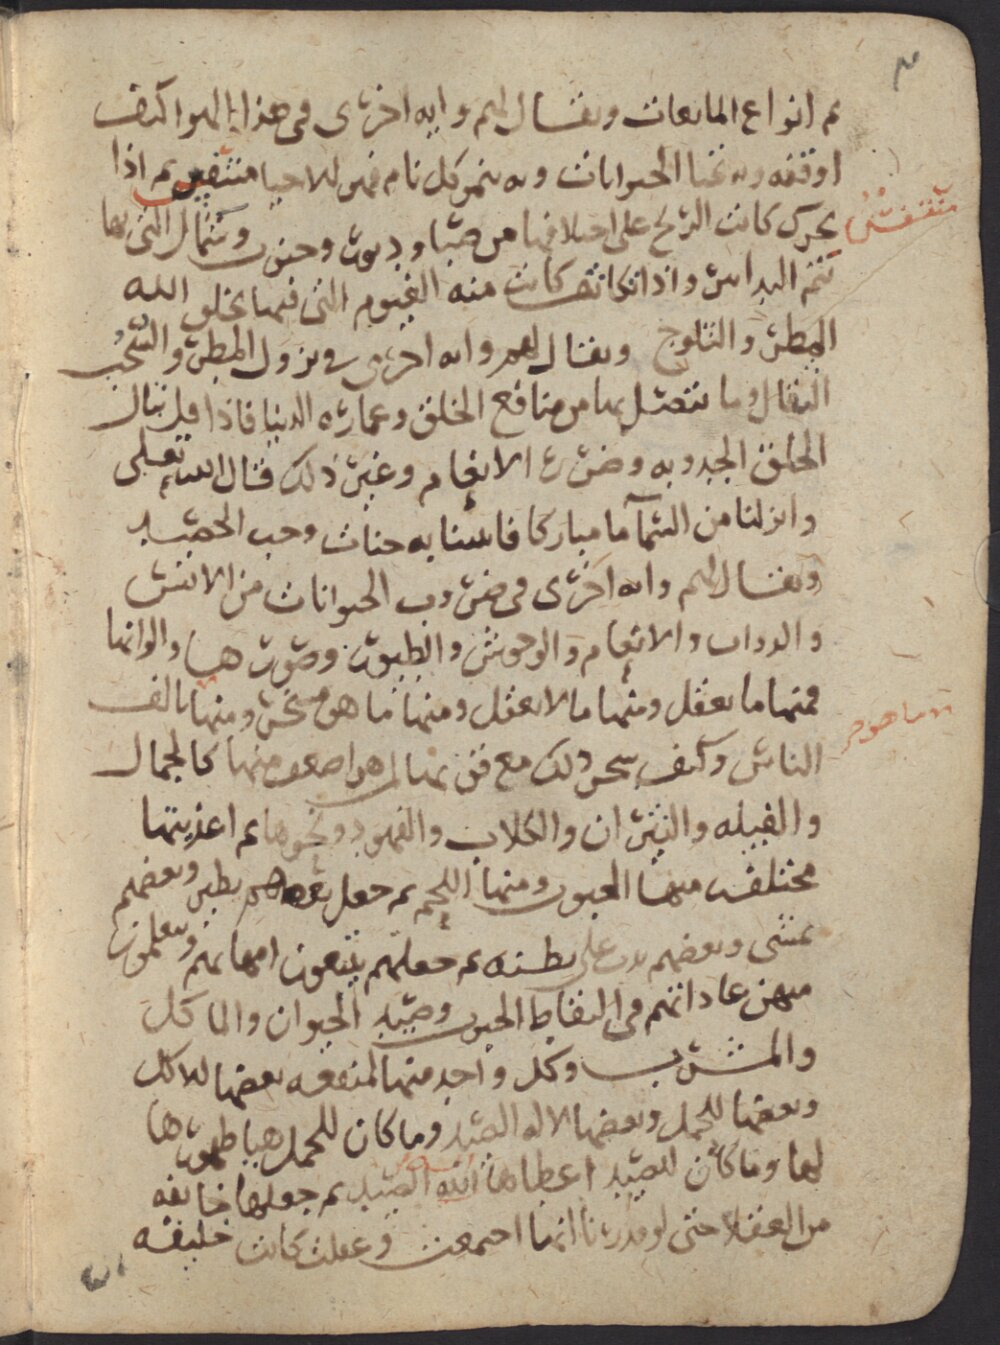 ثم انواع المايعات ويقال لهم وايه اخرى في هذا الهوا كيف
اوقفه وبه تحيا الحيوانات وبه ينمو كل نام فهو للاحيا متنفس ثم اذا
متنفس
تحرك كانت الريح على اختلافها من صبا ودبور وجنوب وشمال التي بها
واذا تكاثف كانت منه الغيوم التي فيها يخلق الله
المطر والثلوج ويقال لهم وايه اخرى في نزول المطر والسحب
الثقال وما تتصل بها من منافع الخلق وعماره الدنيا فاذا قل نال
الخلق الجدوبه وضرع الانعام وغير ذلك قال الله تعلى
وانزلنا من السمآ ما مباركا فانبتنا به جنات وحب الحصيد
ويقال لهم وايه اخرى في ضروب الحيوانات من الانس
والدواب والانعام والوحوش والطيور وصورها والوانها
فمنها ما يعقل ومنها ما لا يعقل ومنها ما هو مسخر ومنها يالف
الناس وكيف سخر ذلك مع قوتها لمن هو اضعف منها كالجمال
والفيله والثيران والكلاب والفهود ونحوها ثم اغذيتها
مختلفه منها الحبوب ومنها اللحم ثم جعل بعضهم يطير وبعضهم
يمشي وبعضهم على بطنه ثم جعلهم يتبعون امهاتهم ويتعلمون
منهن عاداتهم في التقاط الحبوب وصيد الحيوان والماكل
والمشرب وكل واحد منها لمنفعه بعضها للاكل
وبعضها للحمل وبعضها لاله الصيد وما كان للحمل هيا ظهورها
لها وما كان للصيد اعطاها اله الصيد ثم جعلها خايفه
من العقلا حتى لو قدرنا انها اجتمعت وعقلت كانت خليقه